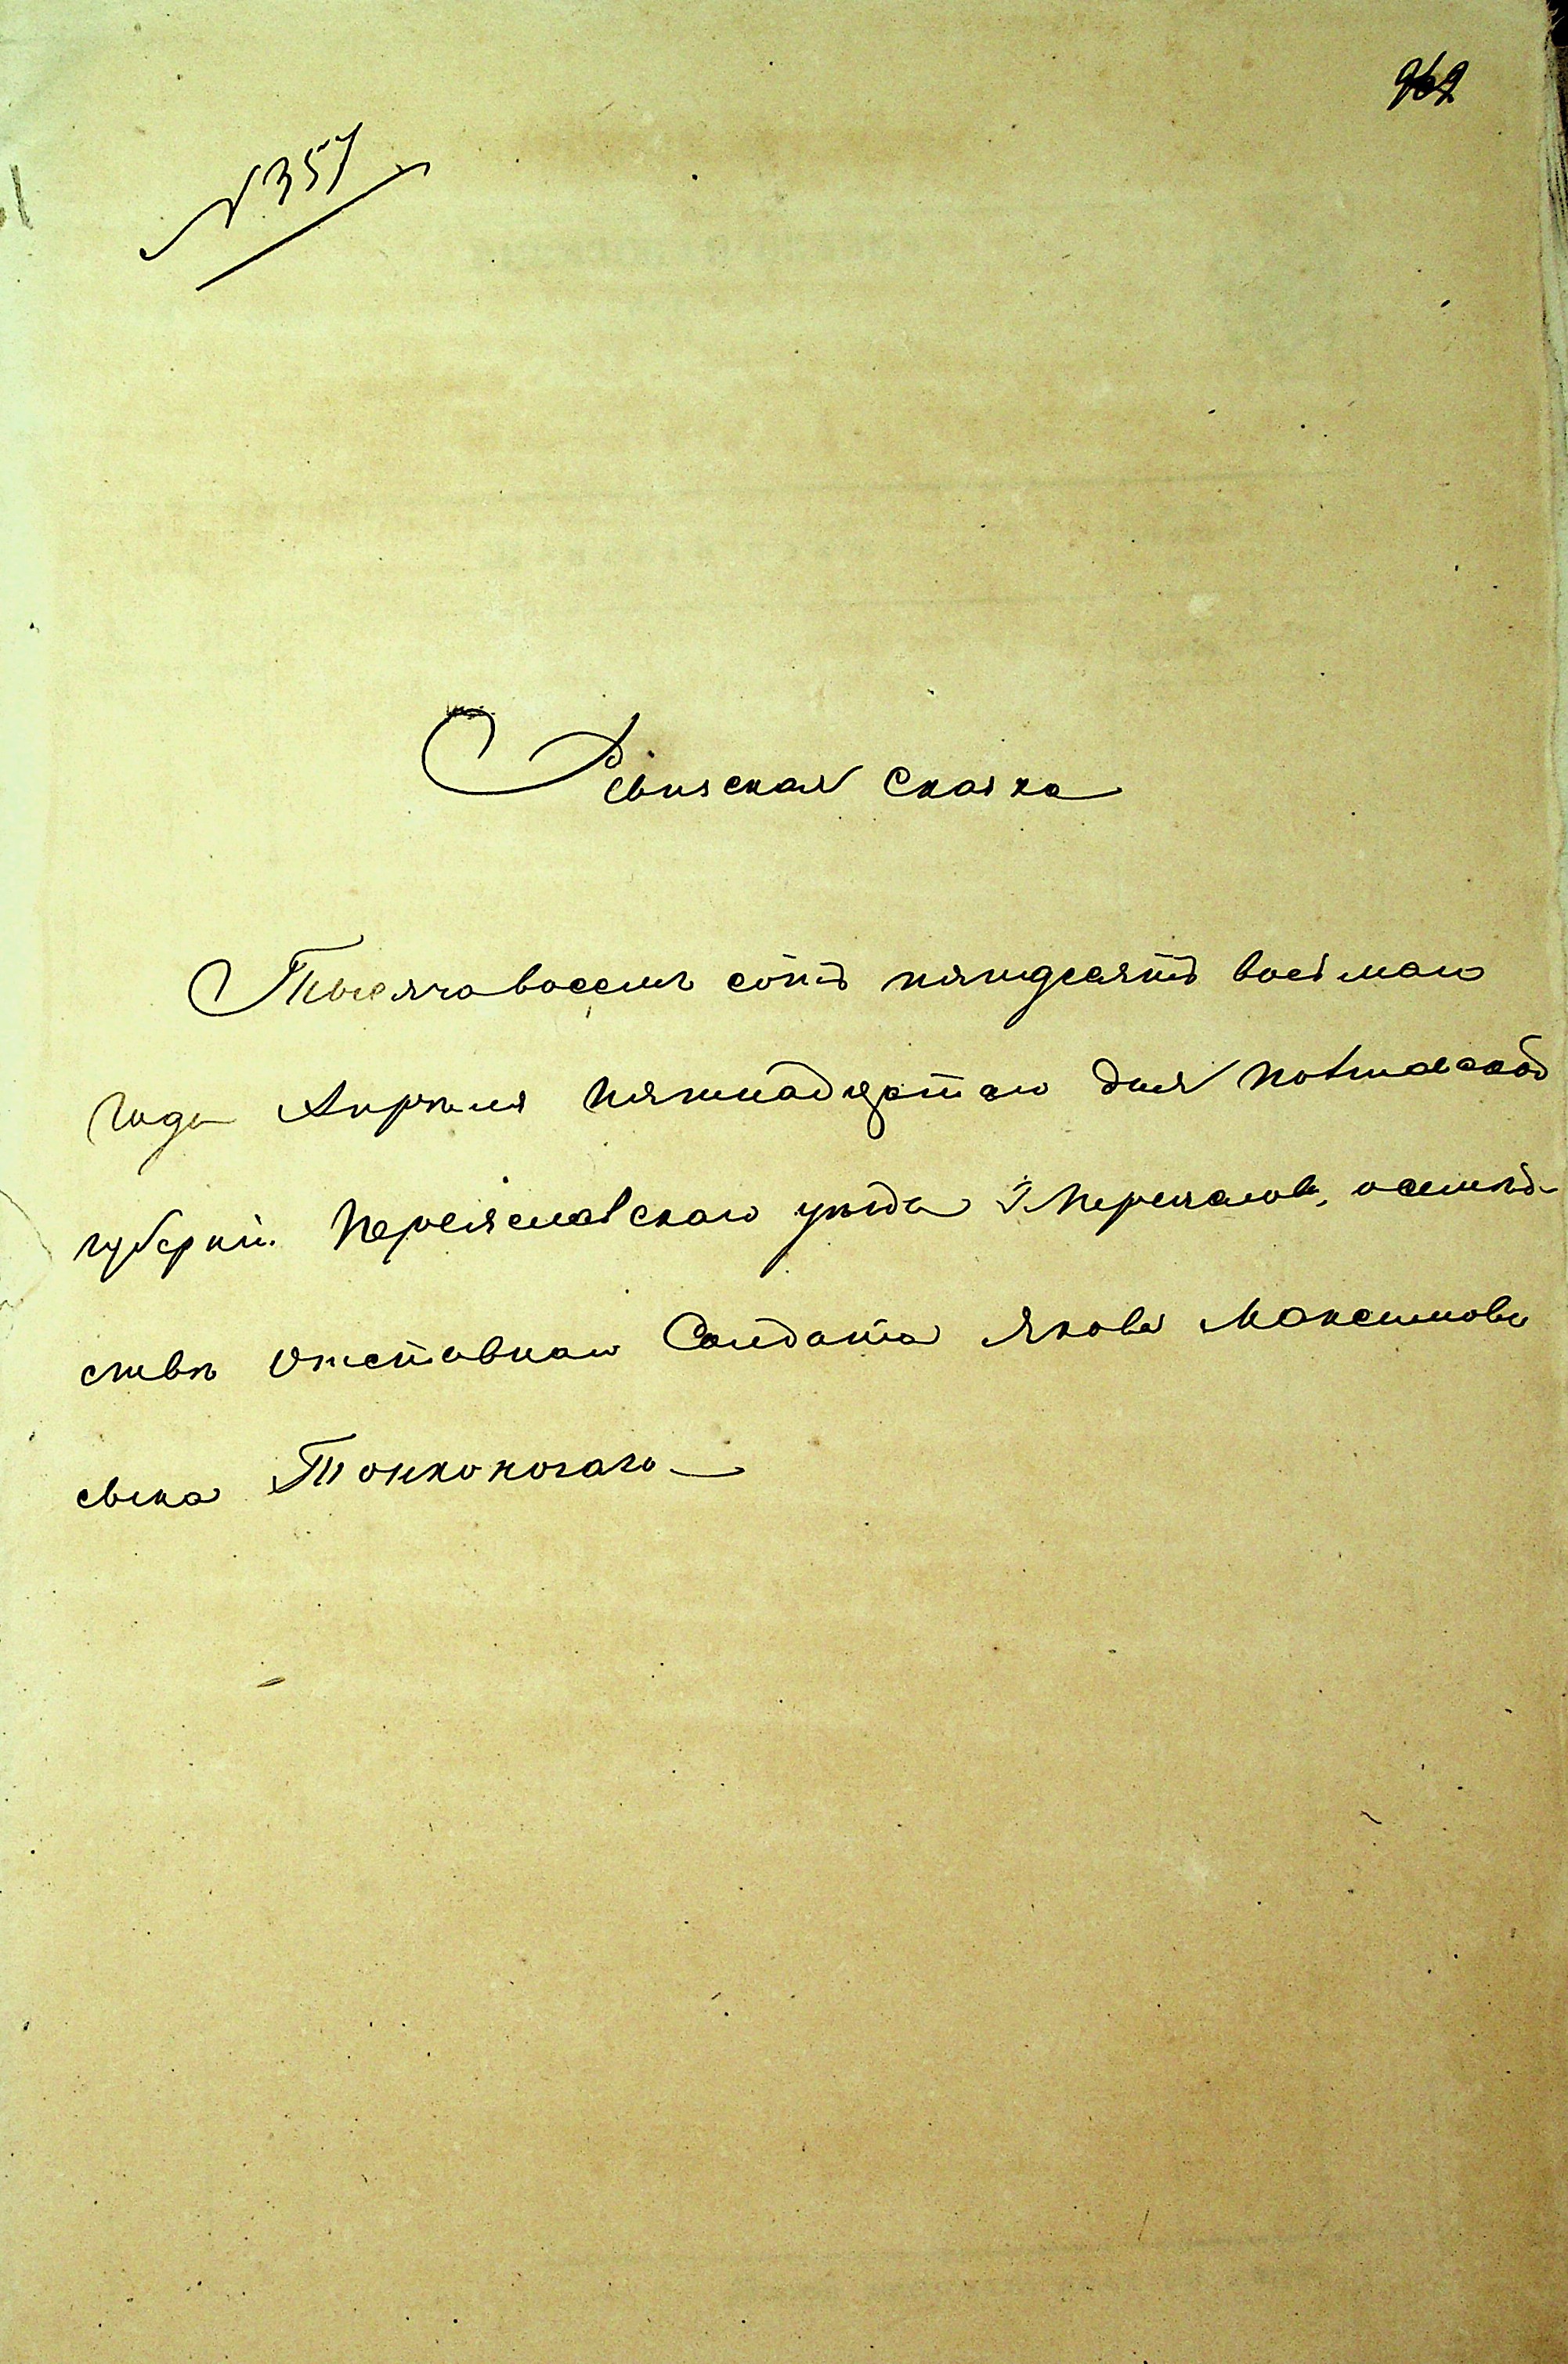 962
№ 357
Ревизская сказка
Тысяча восемь сотъ пятдесятъ восьмаго
года Апрѣля пятнадцатаго дня Полтавской
губерніи Переяславскаго уѣзда г. Переяслов, о семѣй-
ствѣ отставнаго Солдата Якова Максимова
сына Тонконогаго